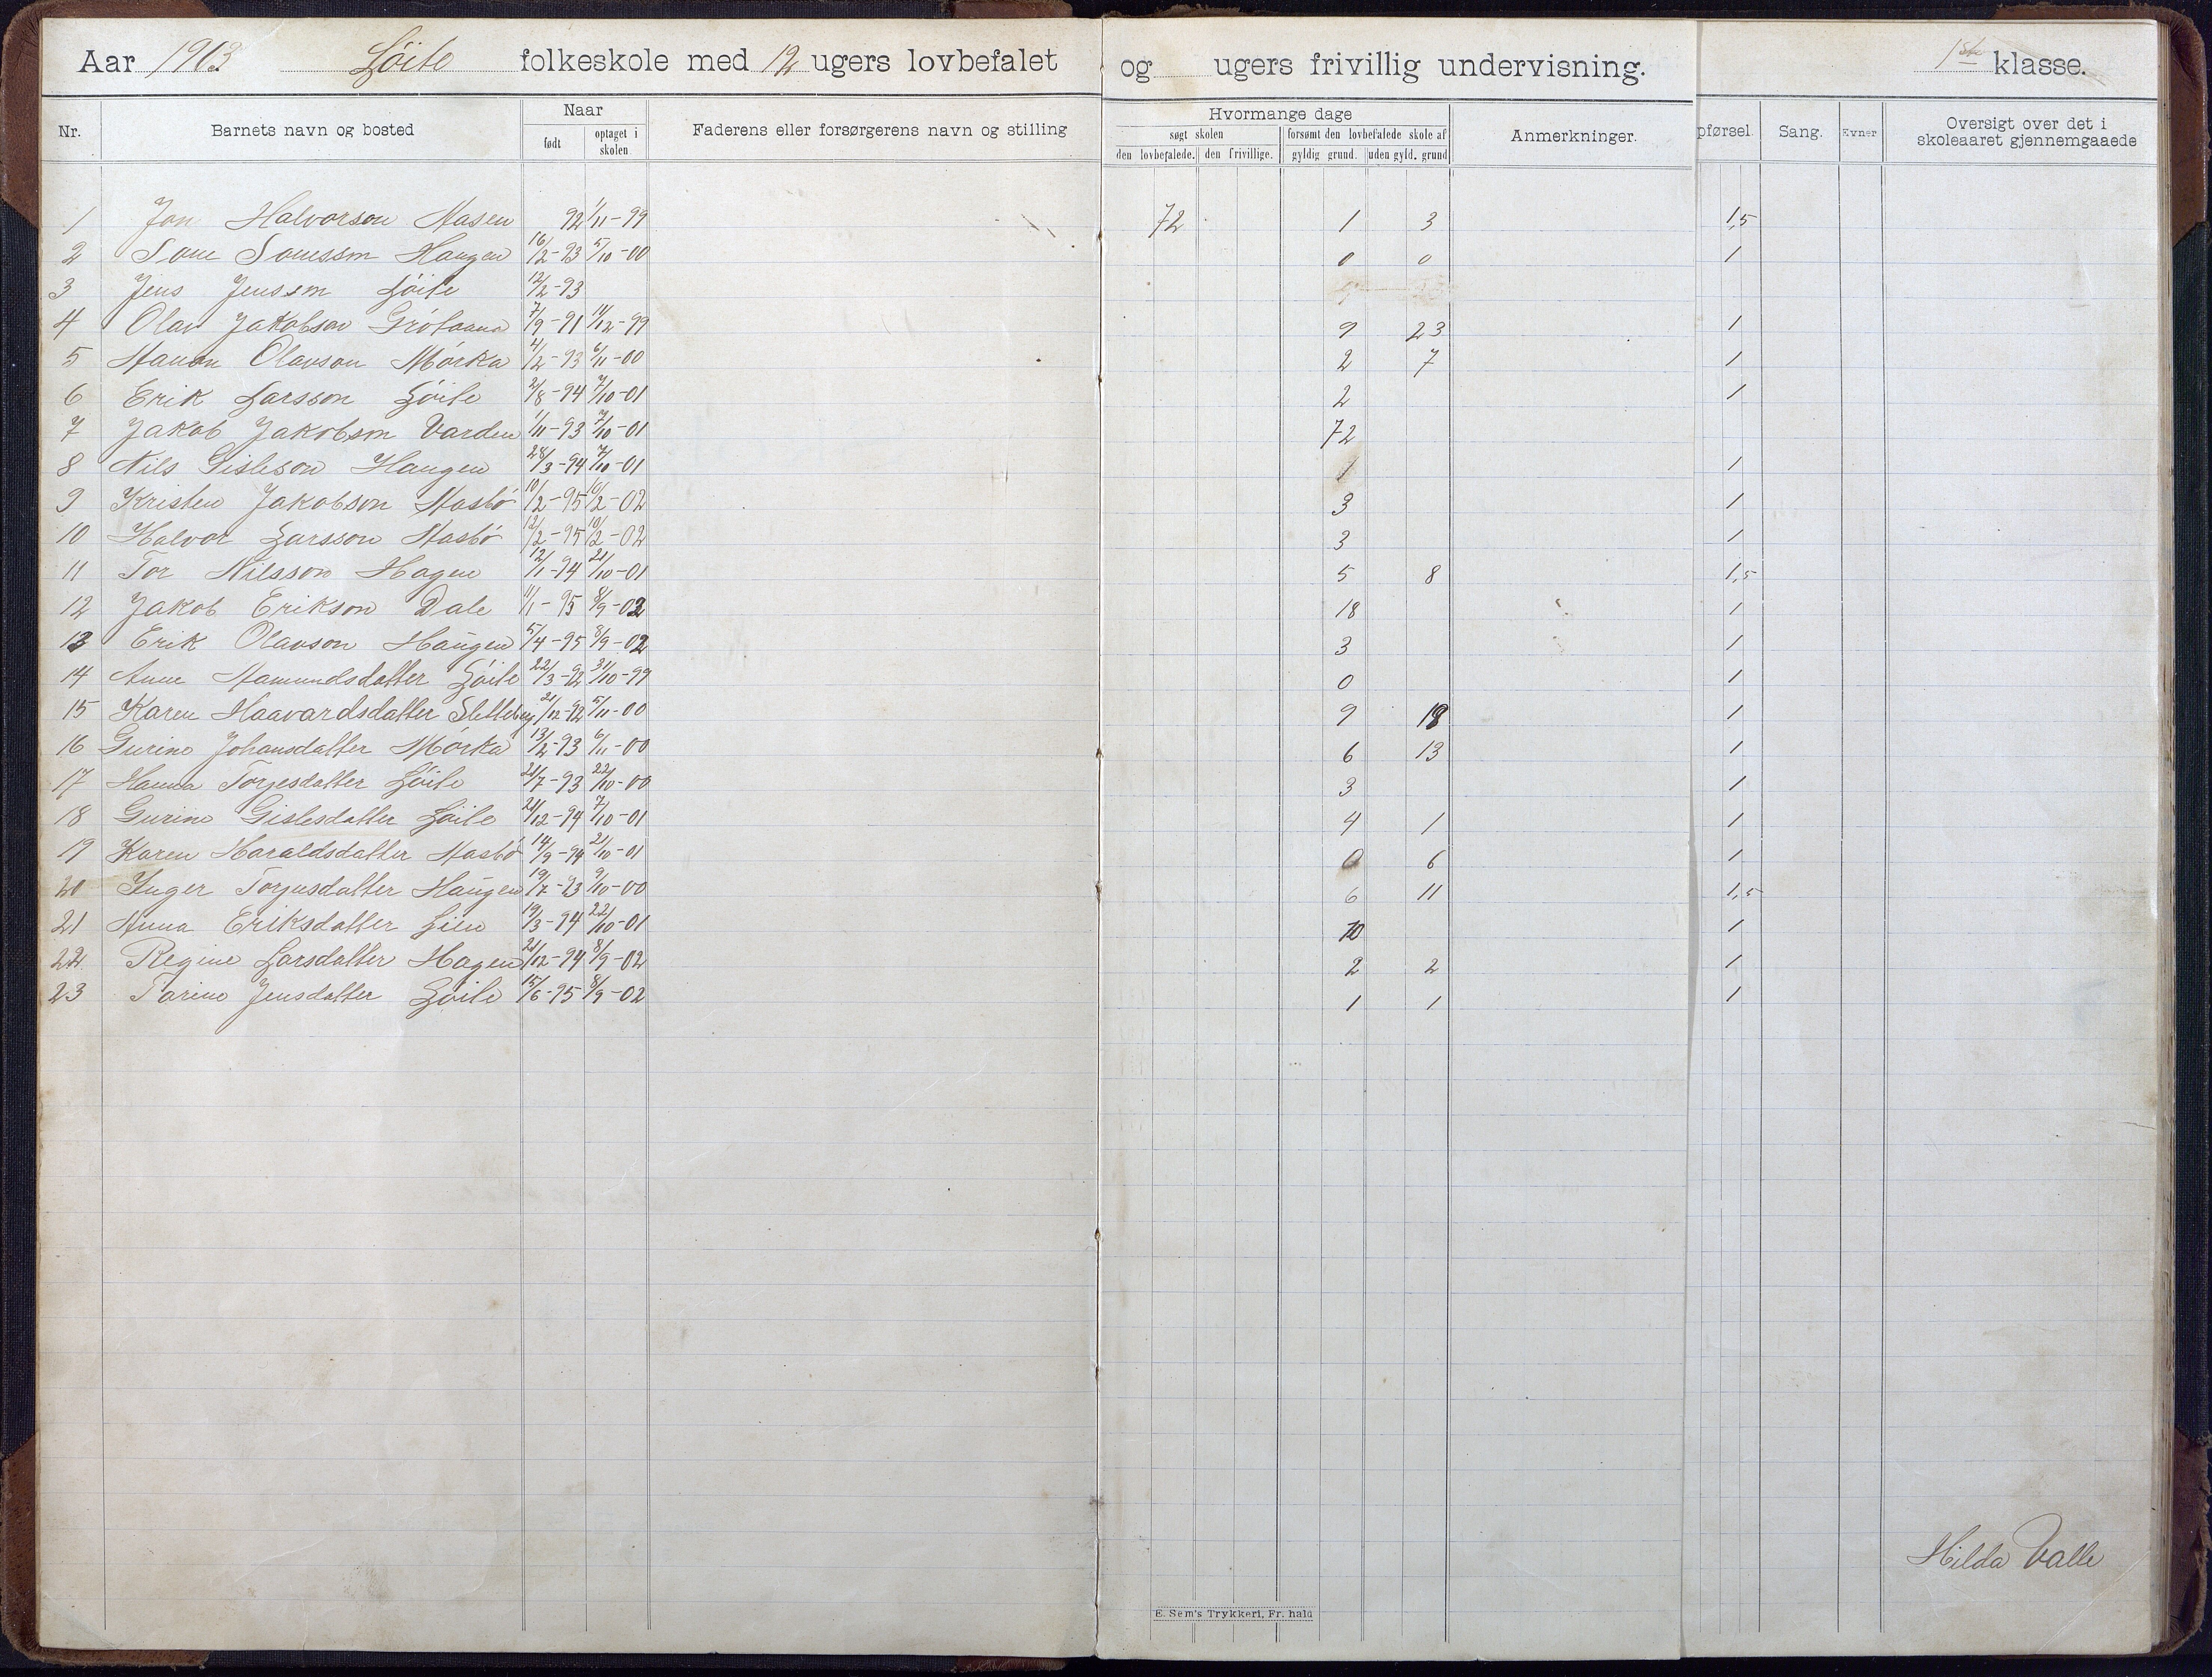 Aar 1903 Løite folkeskole med 12 ugers lovbefalet og ugers frivillig undervisning. 1ste klasse.
Nr. Barnets navn og bosted Naar født optaget i skolen. Faderens eller forsørgerens navn og stilling Hvormange dage søgt skolen den lovbefalede. den frivillige. forsømt den lovbefalede skole af gyldig grund. uden gyld. grund Anmerkninger. pførsel. Sang. Evner Oversigt over det i skoleaaret gjennemgaaede
1 Jon Halvorson Aasen 92 1/11-99 72 1 3 1,5
2 Tom Tomesson Haugen 16/2-93 5/10-00 0 0 1
3 Jens Jensson Løite 12/2-93
4 Olav Jakobson Grótaana 7/9-91 11/12-99 9 23 1
5 Olavson Mórka 4/2-93 6/11-00 2 7 1
6 Erik Larsson Løite 2/8-94 7/10-01 2 1
7 Jakob Jakobson Varden 1/11-93 7/10-01 72
8 Nils Gisleson Haugen 28/3-94 7/10-01 1 1
9 Kristen Jakobson Aasbó 10/2-95 10/2-02 3 1
10 Halvor Larsson Aasbó 12/2-95 10/2-02 3 1
11 Tor Nilsson Hagen 12/1-94 21/10-01 5 8 1,5
12 Jakob Erikson Dale 11/1-95 8/9-02 18 1
13 Erik Olavson Haugen 5/4-95 8/9-02 3 1
14 Anne Aamundsdatter Løite 22/3-92 31/10-99 0 1
15 Karen Haavardsdatter Sletteberg 21/12-92 5/11-00 9 18 1
16 Gurine Johansdatter Mórka 13/2-93 6/11-00 6 13 1
17 Hanna Torjesdatter Løite 21/7-93 22/10-00 3 1
18 Gurine Gislesdatter Løite 21/12-94 7/10-01 4 1 1
19 Karen Haraldsdatter Aasbó 14/9-94 21/10-01 0 6 1
20 Inger Torjusdatter Haugen 19/7-93 9/10-00 6 11 1,5
21 Anna Eriksdatter Lien 19/3-94 22/10-01 10 1
22 Regine Larsdatter Hagen 21/12-94 8/9-02 2 2 1
23 Tarine Jensdatter Løite 15/6-95 8/9-02 1 1 1
Hilda Valle
E. Sem's Trykkeri, Fr. hald